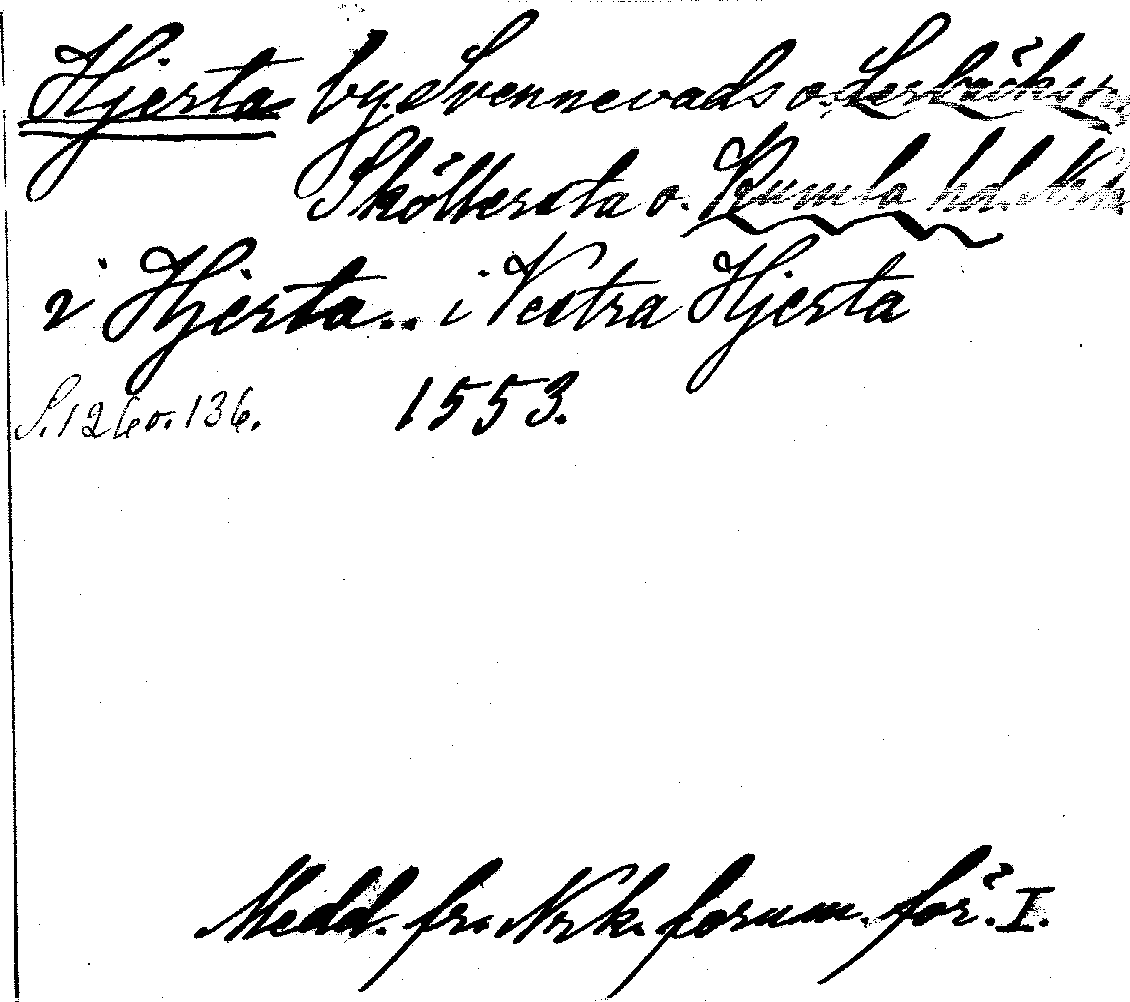 Hjerta by. Svennevads o. Lerbäcks sn,
Sköllersta o. Kumla hd. Nrk.
i Hjerta.. i Vestra Hjerta
S. 126 o. 136. 1553.
Medd. fr. Nrk. fornm. för. I.